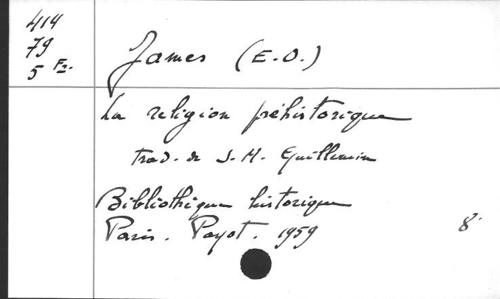 414
79
5 Fr.
James (E.O.)
La religion préhistorique
trad. de S.M. Guillemin
Bibliothèque historique
Paris. Payot. 1959
8°